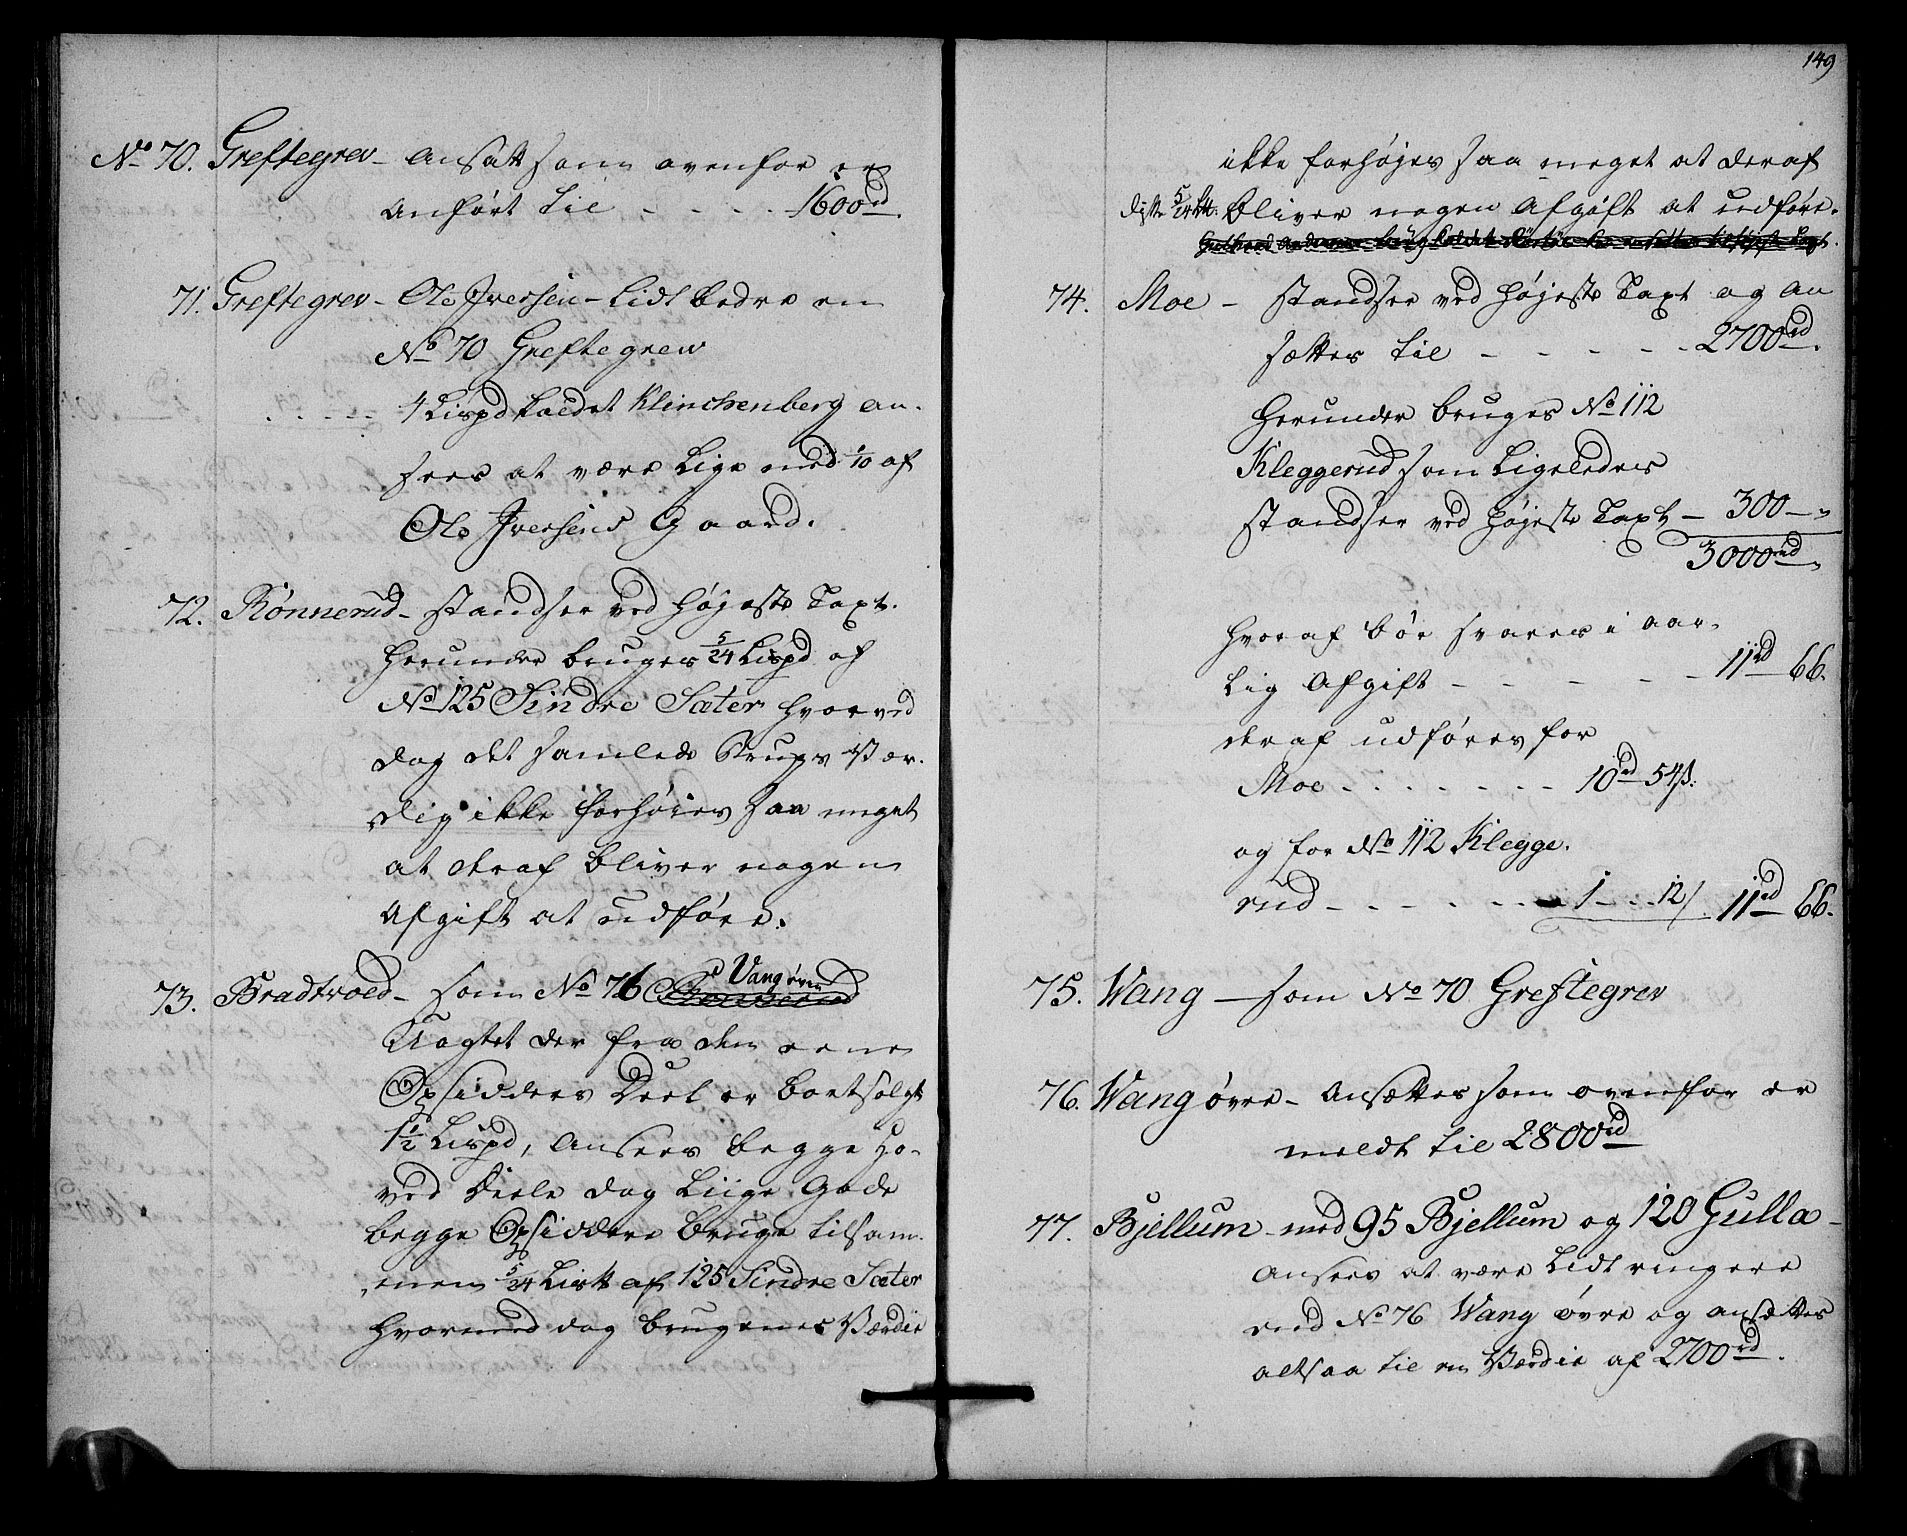 No 70. Greftegrev - Ansatt som ovenfor er
Anført til - - - - 1600rd.
71. Greftegrev - Ole Iversen - Lidt bedre en
No 70 Greftegrew
- - - - 4 Lispd kaldet Klinchenberg an-
sees at være Lige med 1/10 af
Ole Iversens Gaard.
72. Rønnerud - standser ved højeste Taxt.
Herunder bruges 5/24 Lispd af
No 125 Sindre Sæter hvorved
dog det samlede Brugs Vær-
dig ikke forhøies saa meget
at deraf bliver nogen
Afgift at udføre.
73. Bradtvoed - som No 76 Vang øvre
Uagtet der fra den eene
Opsidders Deel er bortsolgt
1 1/2 Lispd, Ansees begge Ho-
ved Deele dog Liige Gode
begge Opsiddere bruge tilsam-
men 5/24 List af 125 Sindre Sæter
hvormed dog brugenes Værdie
149
ikke forhøjes saa meget at deraf
disse 5/24 bliver nogen Afgift at udføre.
74. Moe - standser ved højeste Taxt og an
sættes til - - - - - 2700rd.
Herunder bruges No 112
Kleggerud som Ligeledes
standser ved højeste Taxt - 300 - "
3000rd.
hvoraf bør svares i aar-
Lig Afgift - - - - - 11rd 66.
deraf udføres for
Moe - - - - - - - 10rd 54ß.
og for No 112 Klegge-
rud - - - - - - 1 - - 12/ 11rd 66.
75. Wang - som No 70 Greftegrev
76. Wang øvre - Ansættes som ovenfor er
meldt til 2800rd
77. Bjellum - med 95 Bjellum og 120 Gulla -
Ansees at være Lidt ringere
end No 76 Wang øvre og ansættes
altsaa til en Værdie af 2700rd.